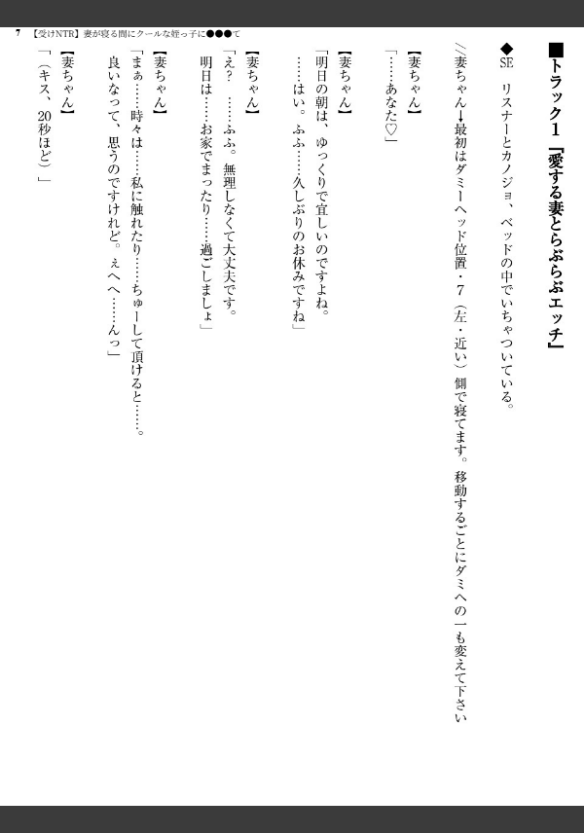 7　【受けNTR】妻が寝る間にクールな姪っ子に●●●て
■トラック１『愛する妻とらぶらぶエッチ』
◆SE　リスナーとカノジョ、ベッドの中でいちゃついている。
//妻ちゃん→最初はダミーヘッド位置・７（左・近い）側で寝てます。移動するごとにダミヘの一も変えて下さい
【妻ちゃん】
「……あなた♡」
【妻ちゃん】
「明日の朝は、ゆっくりで宜しいのですよね。
……はい。ふふ……久しぶりのお休みですね」
【妻ちゃん】
「え？　……ふふ。無理しなくて大丈夫です。
明日は……お家でまったり……過ごしましょ」
【妻ちゃん】
「まぁ……時々は……私に触れたり……ちゅーして頂けると……。
良いなって、思うのですけれど。ぇへへ……んっ」
【妻ちゃん】
「（キス、20秒ほど）」